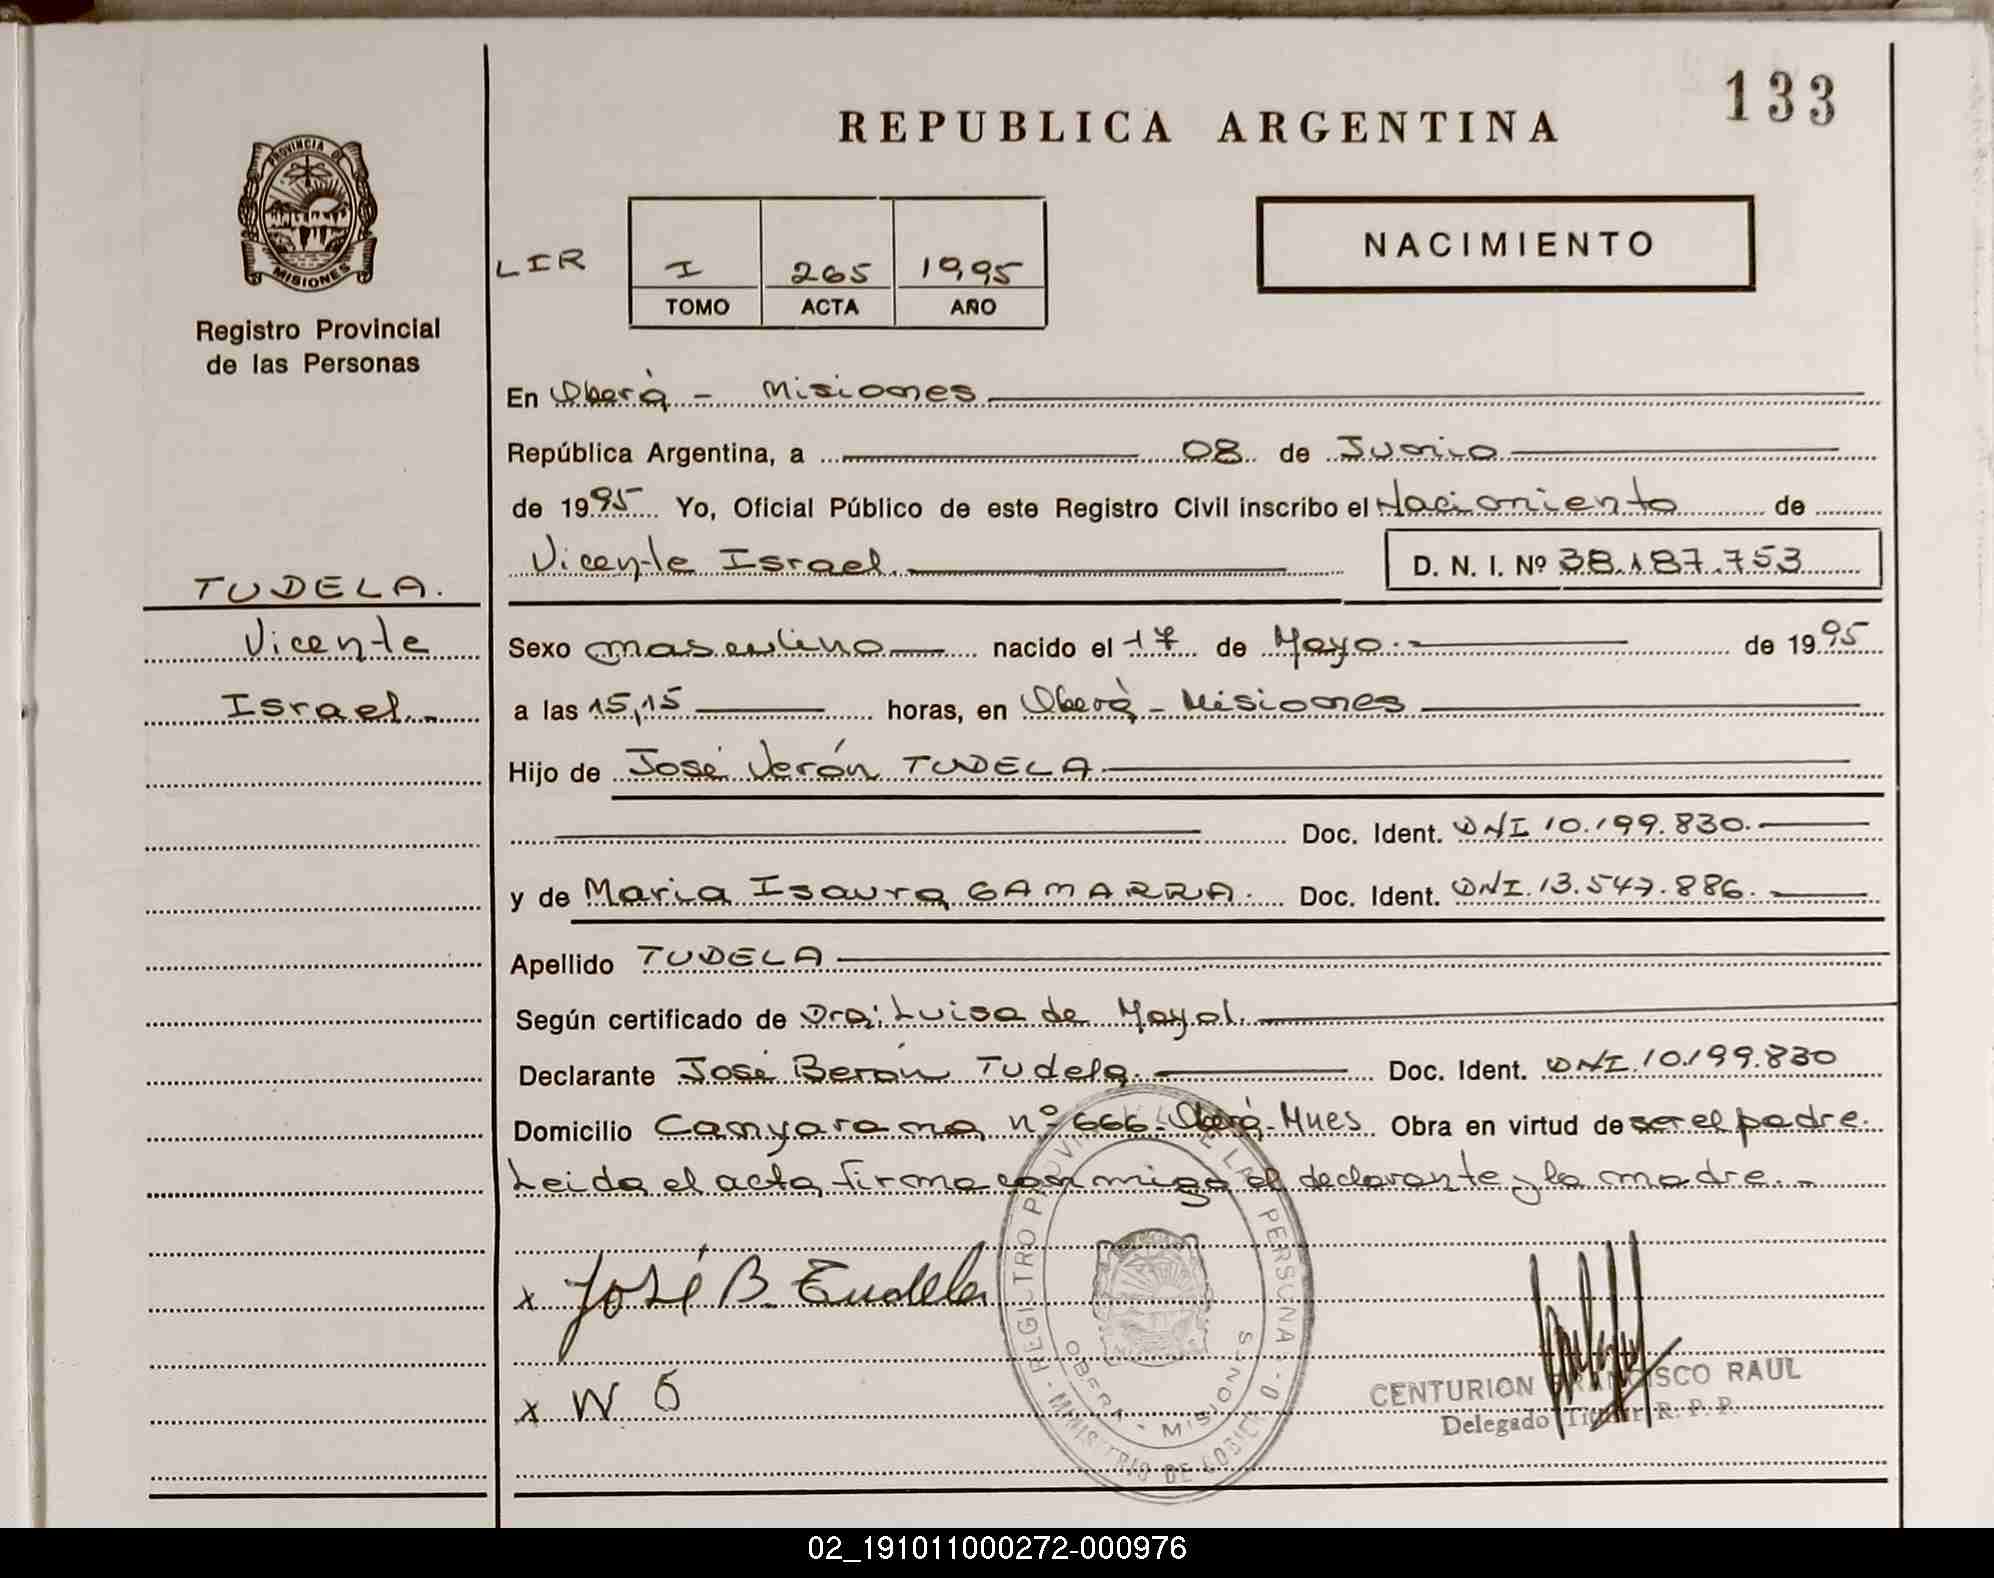 133
REPUBLICA ARGENTINA
PROVINCIA DE
MISIONES
Registro Provincial
de las Personas
NACIMIENTO
LIR I 265 1995
TOMO ACTA AÑO
En Oberà - Misiones
República Argentina, a 08 de Junio
de 1995 Yo, Oficial Público de este Registro Civil inscribo el Nacimiento de
Vicente Israel. D. N. I. Nº 38.187.753
TUDELA.
Vicente
Israel.-
Sexo masculino nacido el 17 de Mayo. de 1995
a las 15,15 horas, en Oberà - Misiones
Hijo de José Verón TUDELA.
Doc. Ident. DNI 10.199.830.
y de Maria Isaura GAMARRA. Doc. Ident. DNI. 13.547.886.
Apellido TUDELA
Según certificado de Dra: Luisa de Mayol.
Declarante José Berón Tudela. Doc. Ident. DNI. 10.199.830
Domicilio nº 666- Oberà- Mnes Obra en virtud de ser el padre.
Leida el acta, firma conmigo el declarante y la madre.-
x José B. Tudela
x
REGISTRO PROVINCIAL DE LAS PERSONAS
OBERA - MISIONES
MINISTERIO DE GOBIERNO
CENTURION FRANCISCO RAUL
Delegado Titular R. P. P.
02_191011000272-000976